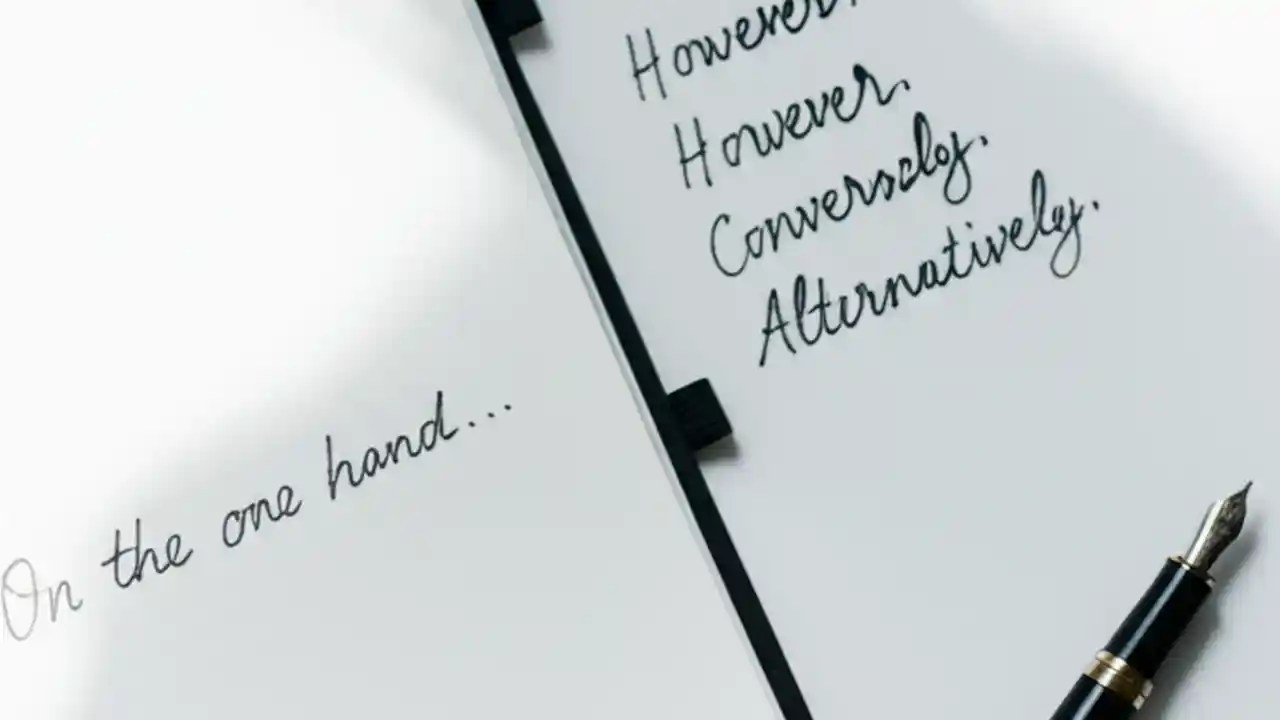 On the one hand...
However,
However.
Conversely.
Alternatively.